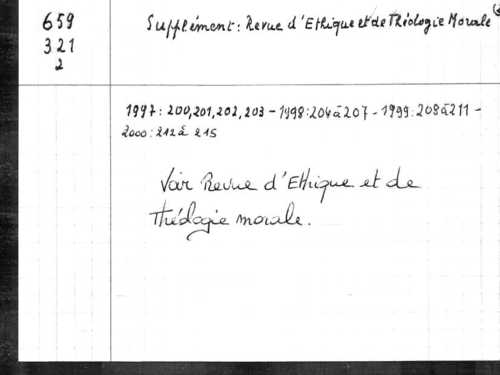 659
321
2
Supplément: Revue d'Ethique et de Théologie Morale
1997: 200, 201, 202, 203 - 1998: 204 à 207 - 1999: 208 à 211 -
2000: 212 à 215
Voir Revue d'Ethique et de
Théologie morale.